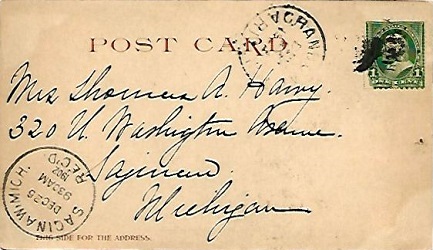 POST CARD
1
Mrs Thomas A. Harvy.
320 N. Washington Avenue.
Saginaw.
Michigan
SAGINAW, MICH.
DEC 25
9 30 AM
1902
REC'D
THIS SIDE FOR THE ADDRESS.